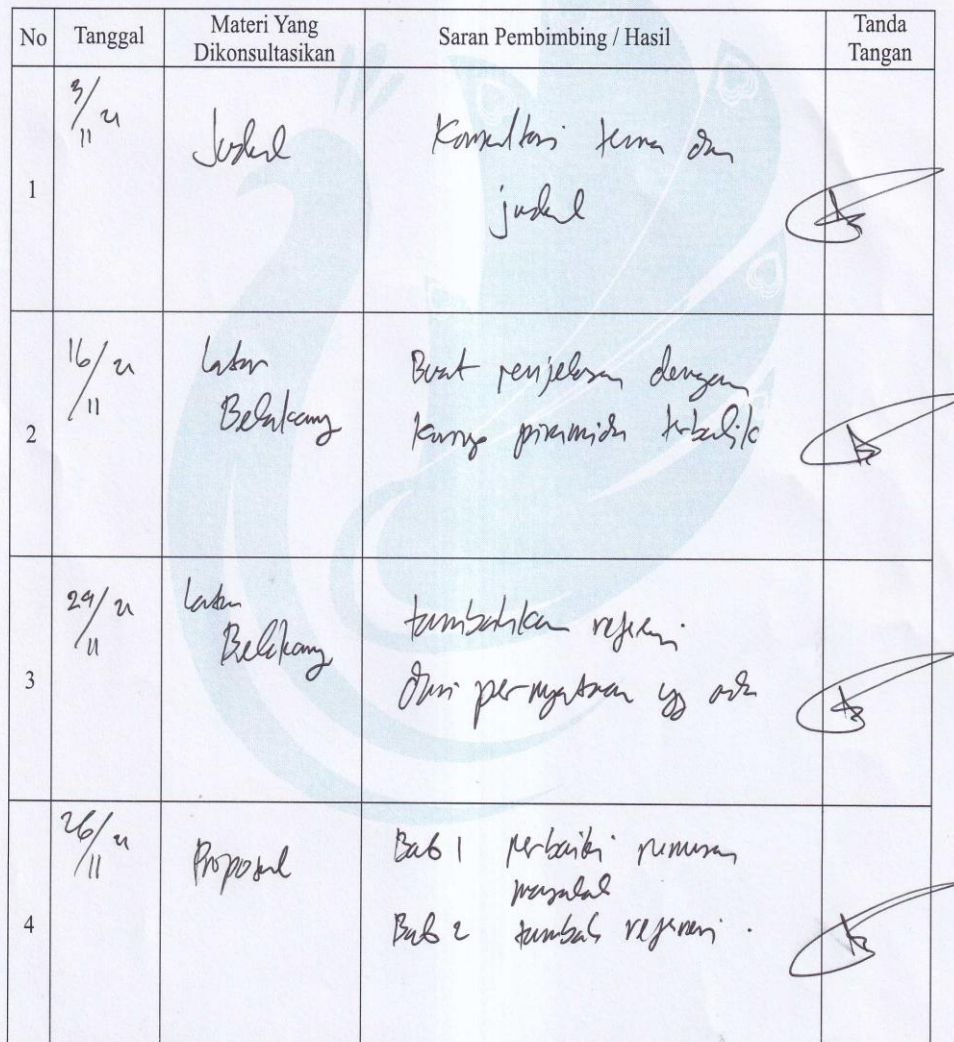 No Tanggal Materi Yang Dikonsultasikan Saran Pembimbing / Hasil Tanda Tangan
1 3/11 21 Judul Konsultasi tema dan
judul
2 16/11 21 Latar Buat penjelasan dengan
Belakang piramida terbalik
3 29/11 21 Latar tambahkan referensi
Belakang dari pernyataan yg ada
4 26/11 21 Proposal Bab 1 perbaiki rumusan
masalah
Bab 2 tambah referensi.